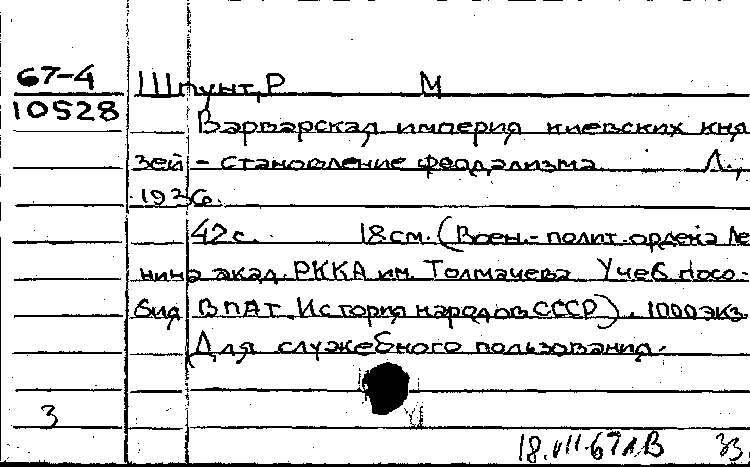 67-4 Шпунт, Р М
10528
Варварская империя киевских кня
зей - становление феодализма. Л.,
1936.
42с. 18см. (Воен.-полит. ордена Ле
нина акад. РККА им. Толмачева Учеб посо-
бия ВПАТ. История народов СССР). 1000 экз.
Для служебного пользования.
3
18.VII.67 ЛВ 33